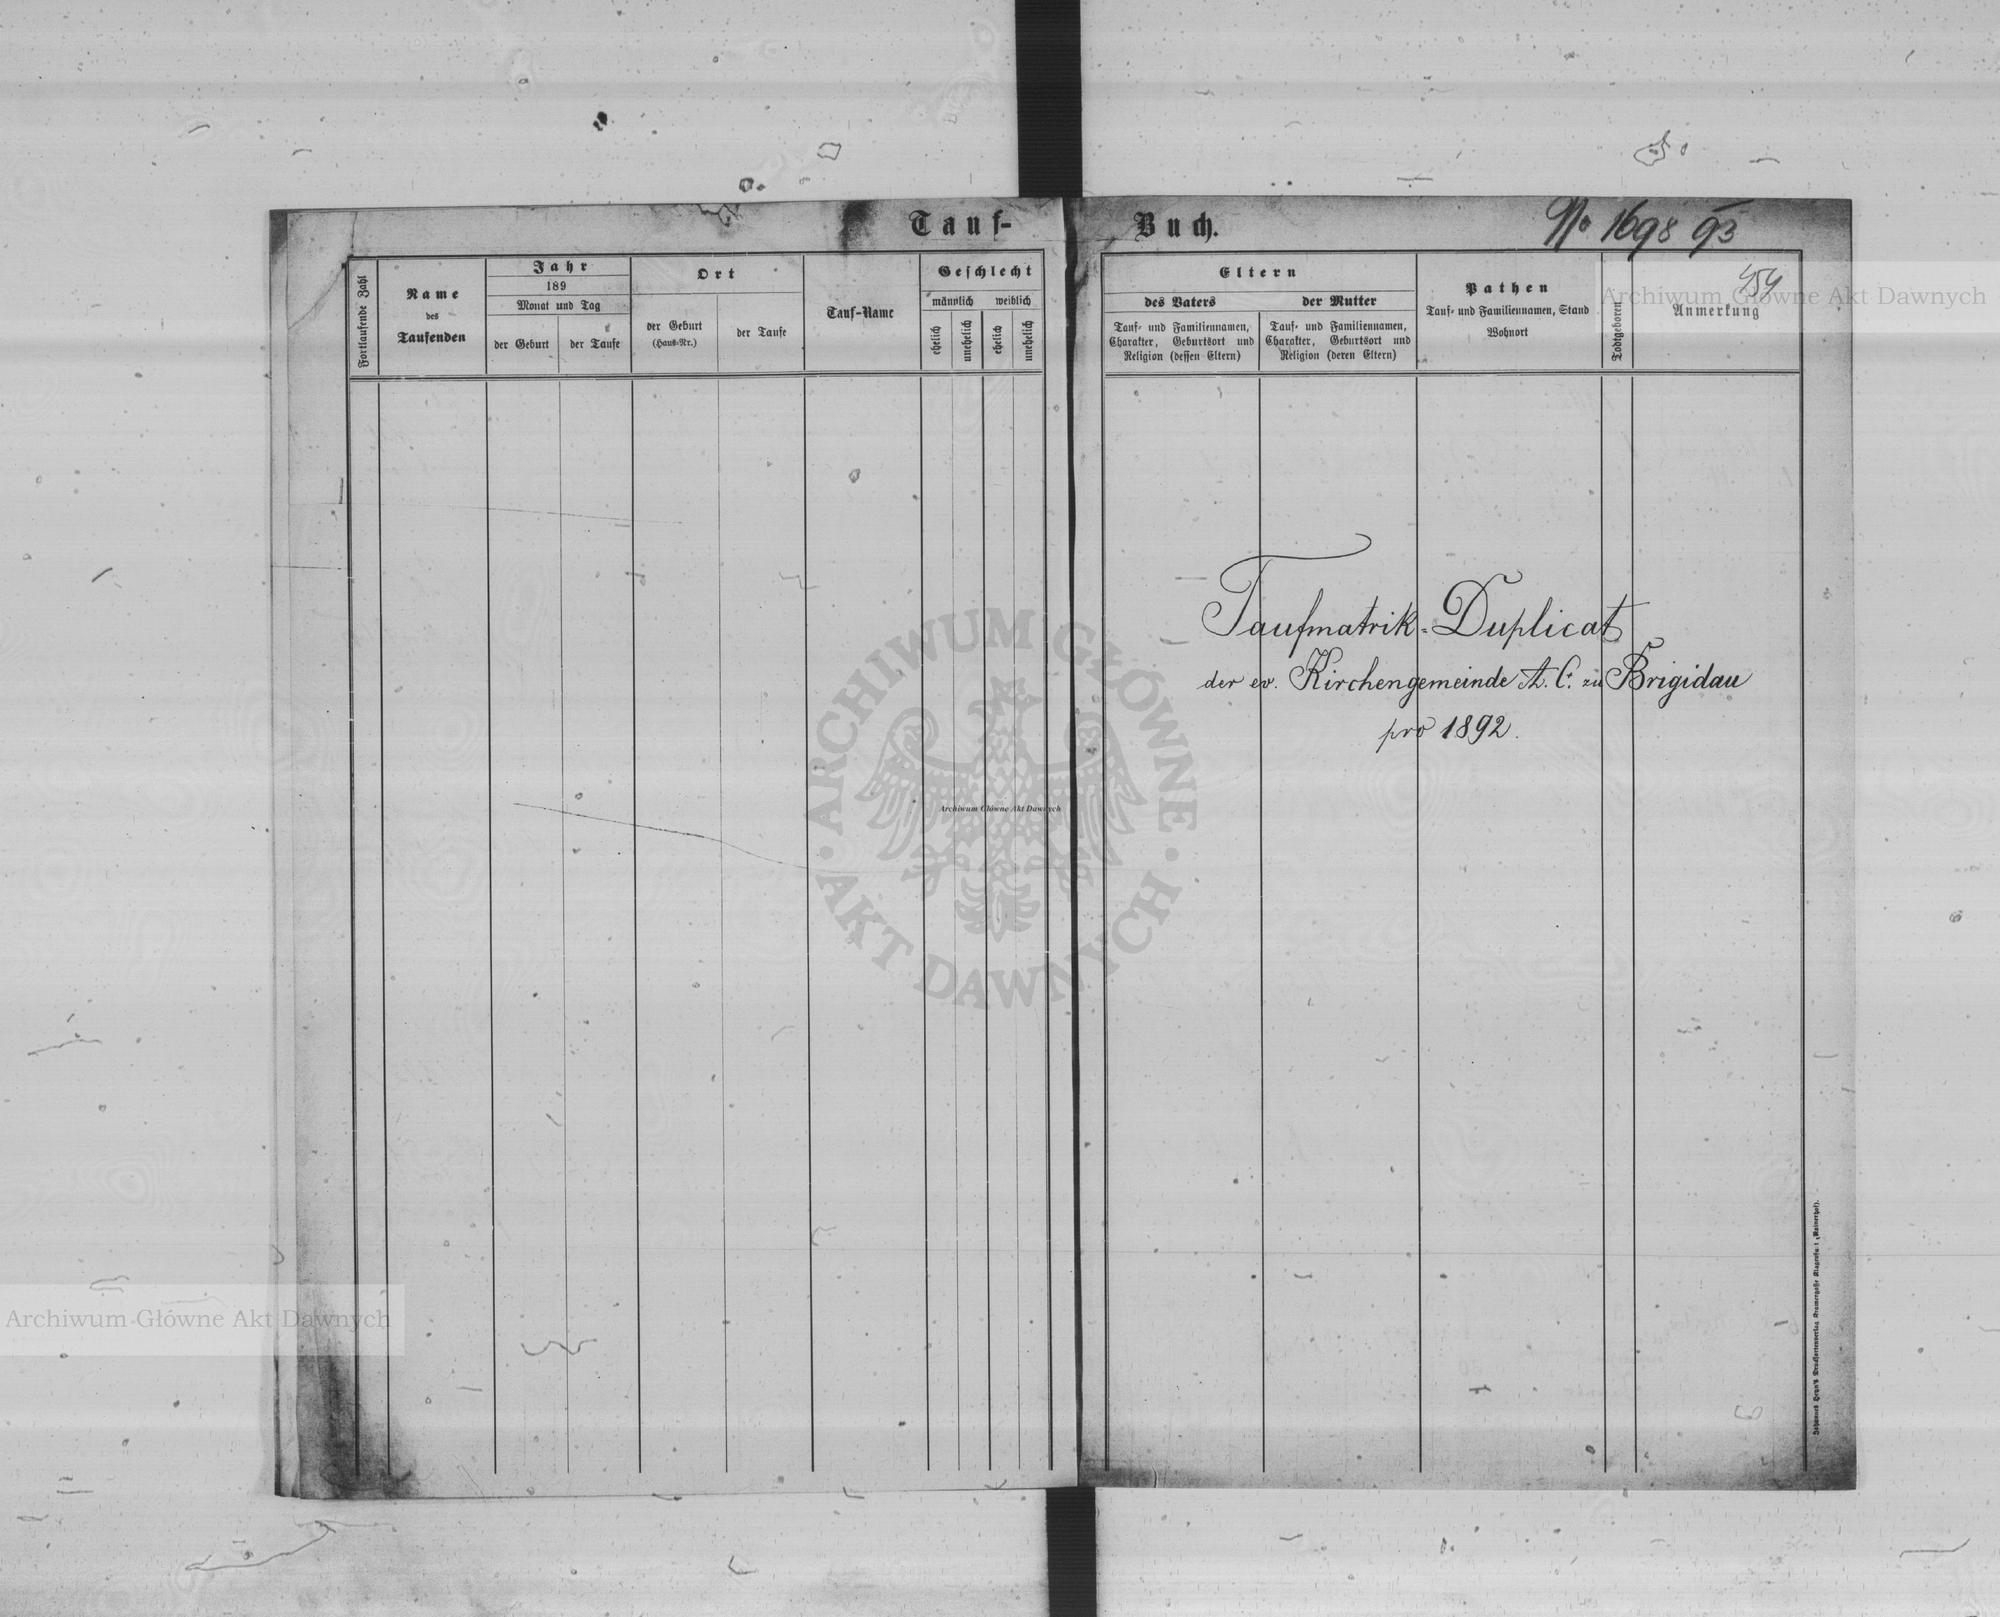 Tauf-
Buch.
No 1698 93
459
Fortlaufende Zahl
Name
des
Taufenden
Jahr
189
Monat und Tag
der Geburt
der Taufe
Ort
der Geburt
(Haus-Nr.)
der Taufe
Tauf-Name
Geschlecht
männlich weiblich
ehelich
unehelich
ehelich
unehelich
Eltern
des Vaters
Tauf- und Familiennamen,
Charakter, Geburtsort und
Religion (dessen Eltern)
der Mutter
Tauf- und Familiennamen,
Charakter, Geburtsort und
Religion (deren Eltern)
Pathen
Tauf- und Familiennamen, Stand
Wohnort
Todtgeboren
Anmerkung
Archiwum Główne Akt Dawnych
Taufmatrik-Duplicat
der ev. Kirchengemeinde A. C. zu Brigidau
pro 1892.
ARCHIWUM GŁÓWNE
AKT DAWNYCH
Archiwum Główne Akt Dawnych
Archiwum Główne Akt Dawnych
Johannes Heyn's Drucksortenverlag Kramergasse Klagenfurt